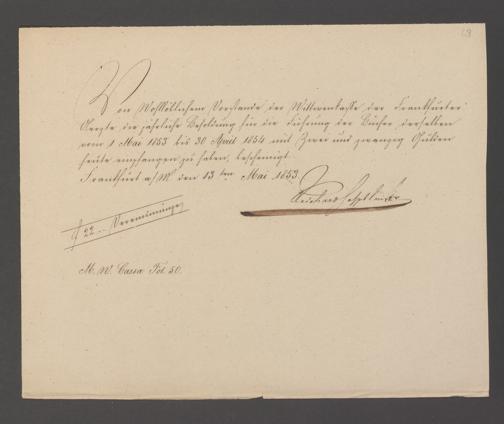 Von Wohllöblichem Vorstande der Wittwenkasse der Frankfurter
Aerzte die jährliche Besoldung für die Führung der Bücher derselben
vom 1 Mai 1853 bis 30 April 1854 mit Zwei und zwanzig Gulden
heute empfangen zu haben, bescheinigt
Frankfurt a/M den 13ten Mai 1853.
f 22 
M. W. Cassa Fol 50.